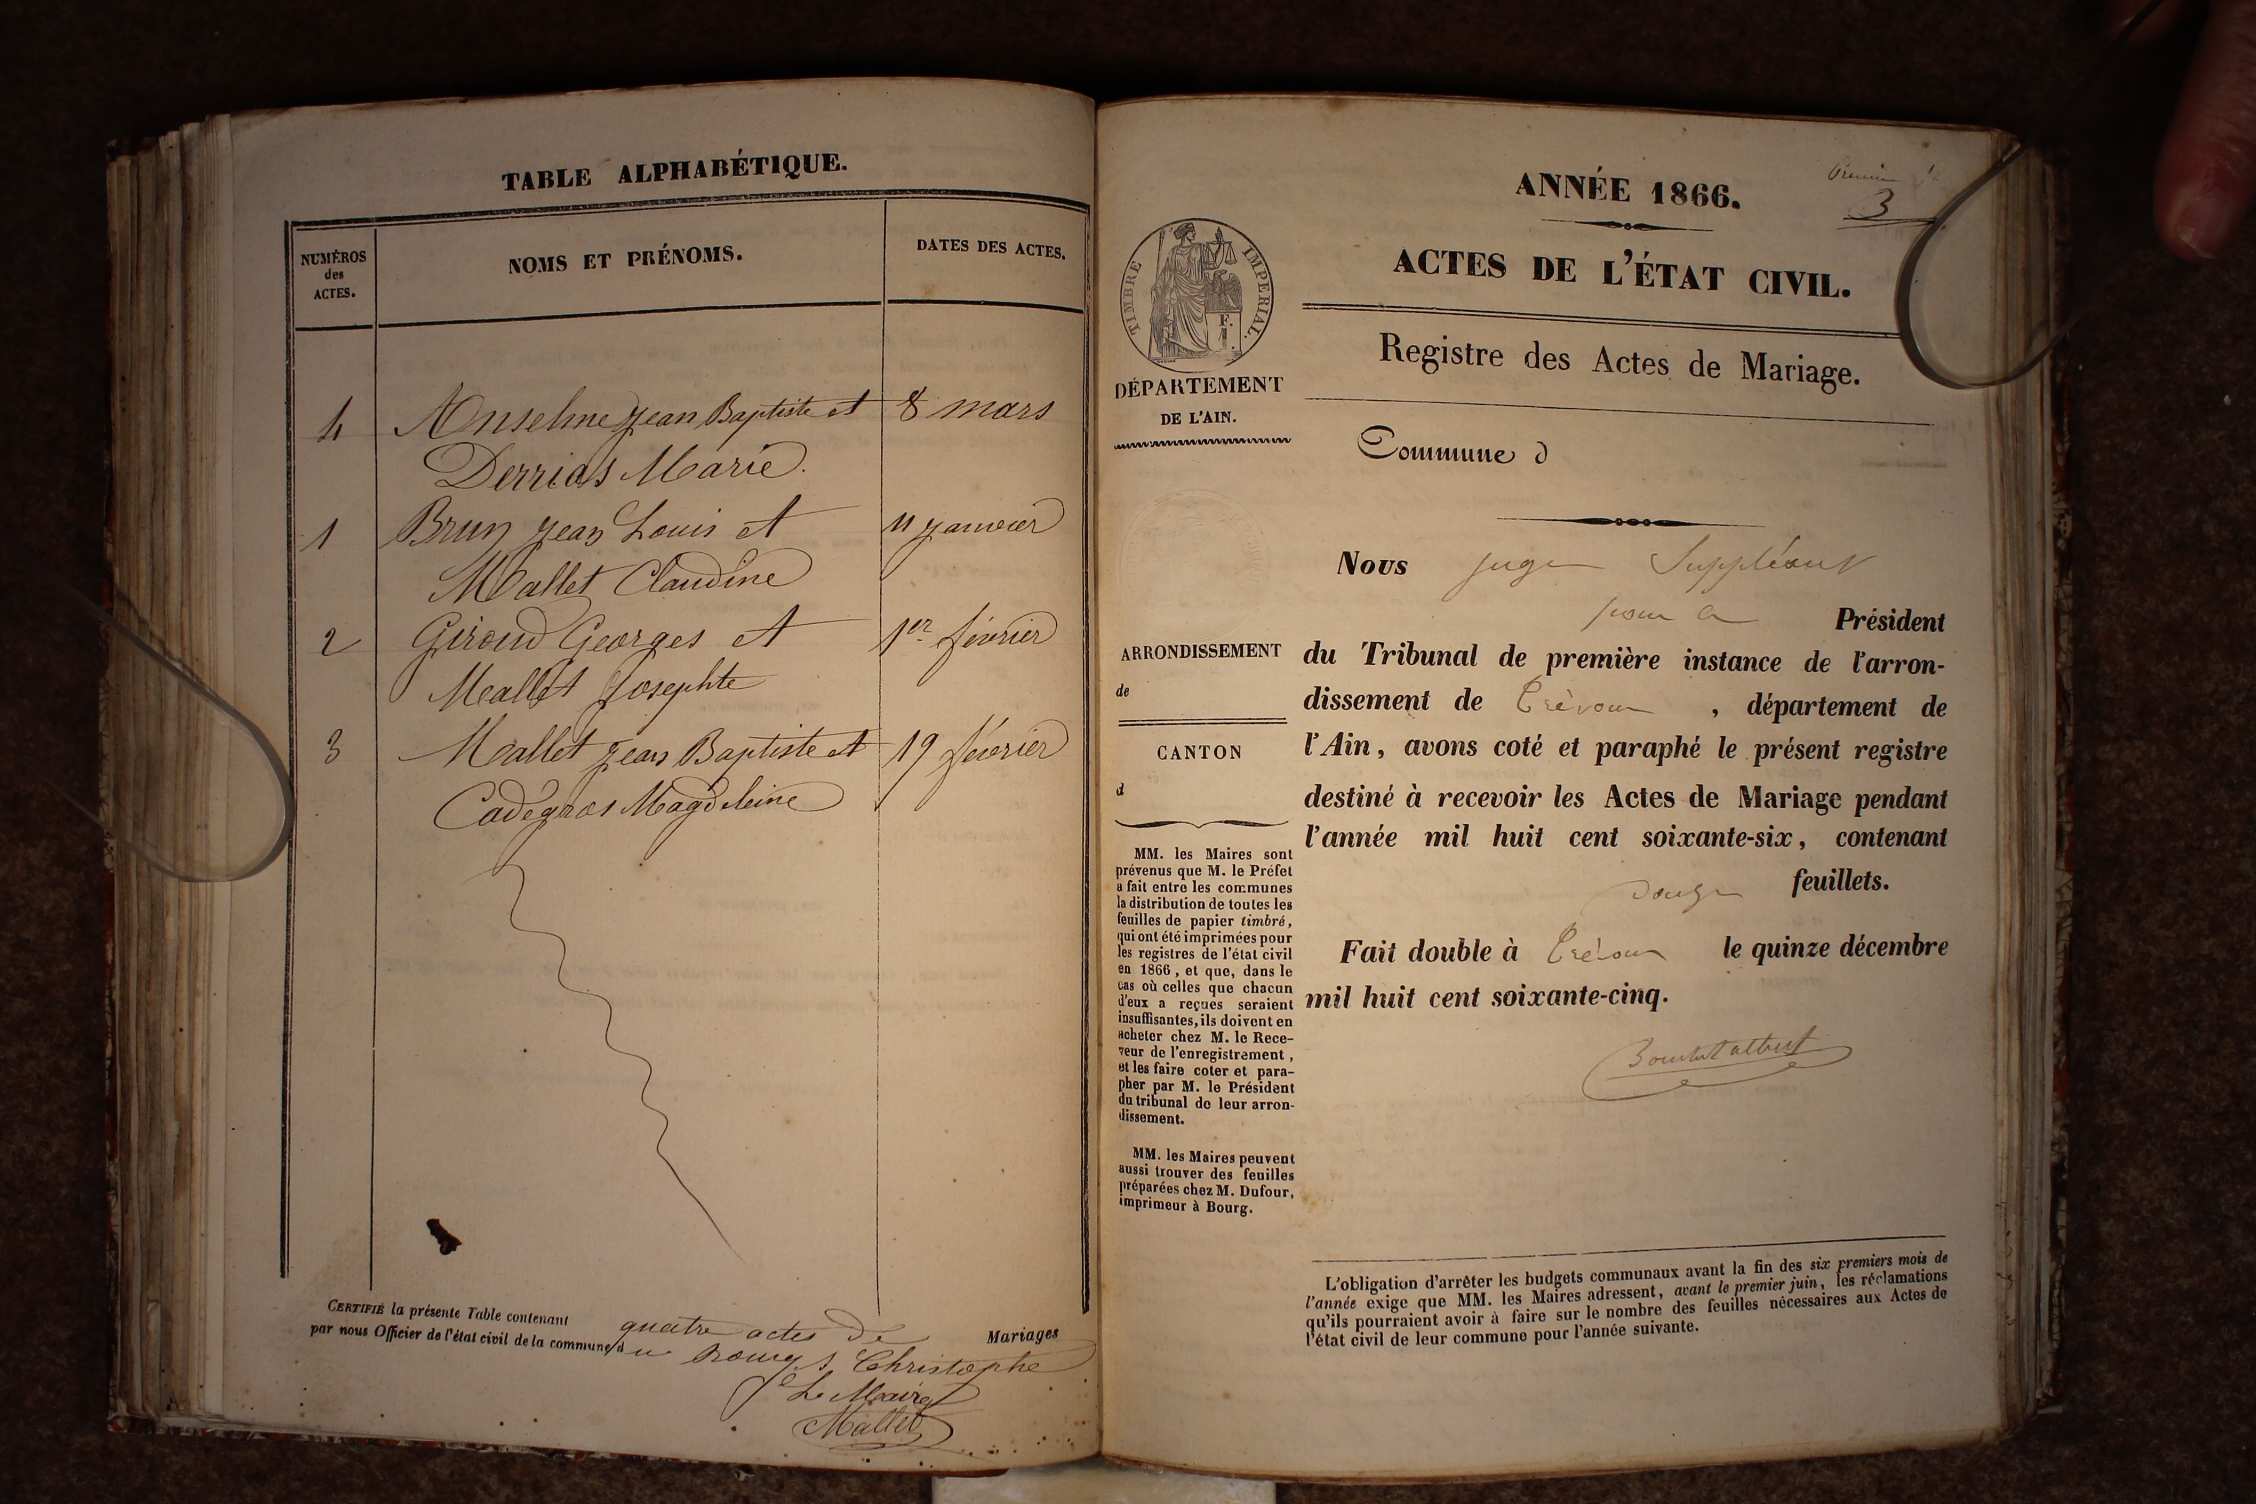 TABLE ALPHABÉTIQUE.
NUMÉROS
des
ACTES.
NOMS ET PRÉNOMS.
DATES DES ACTES.
4 Anselme Jean Baptiste et 8 mars
Derrias Marie.
1 Brun Jean Louis et 11 janvier
Mallet Claudine
2 Giroud Georges et 1er février
Mallet Josephte
3 Mallet Jean Baptiste et 19 février
Cadegros Magdeleine
CERTIFIÉ la présente Table contenant quatre actes de Mariages
par nous Officier de l'état civil de la commune du Bourg St Christophe
Le Maire
Mallet
3
ANNÉE 1866.
ACTES DE L'ÉTAT CIVIL.
Registre des Actes de Mariage.
TIMBRE IMPERIAL.
F.
DÉPARTEMENT
DE L'AIN.
Commune d
ARRONDISSEMENT
de
CANTON
d
MM. les Maires sont
prévenus que M. le Préfet
a fait entre les communes
la distribution de toutes les
feuilles de papier timbré,
qui ont été imprimées pour
les registres de l'état civil
en 1866, et que, dans le
cas où celles que chacun
d'eux a reçues seraient
insuffisantes, ils doivent en
acheter chez M. le Rece-
veur de l'enregistrement,
et les faire coter et para-
pher par M. le Président
du tribunal de leur arron-
dissement.
MM. les Maires peuvent
aussi trouver des feuilles
préparées chez M. Dufour,
imprimeur à Bourg.
Nous Juge Suppléant
pour le Président
du Tribunal de première instance de l'arron-
dissement de Trévoux, département de
l'Ain, avons coté et paraphé le présent registre
destiné à recevoir les Actes de Mariage pendant
l'année mil huit cent soixante-six, contenant
douze feuillets.
Fait double à Trévoux le quinze décembre
mil huit cent soixante-cinq.
L'obligation d'arrêter les budgets communaux avant la fin des six premiers mois de
l'année exige que MM. les Maires adressent, avant le premier juin, les réclamations
qu'ils pourraient avoir à faire sur le nombre des feuilles nécessaires aux Actes de
l'état civil de leur commune pour l'année suivante.